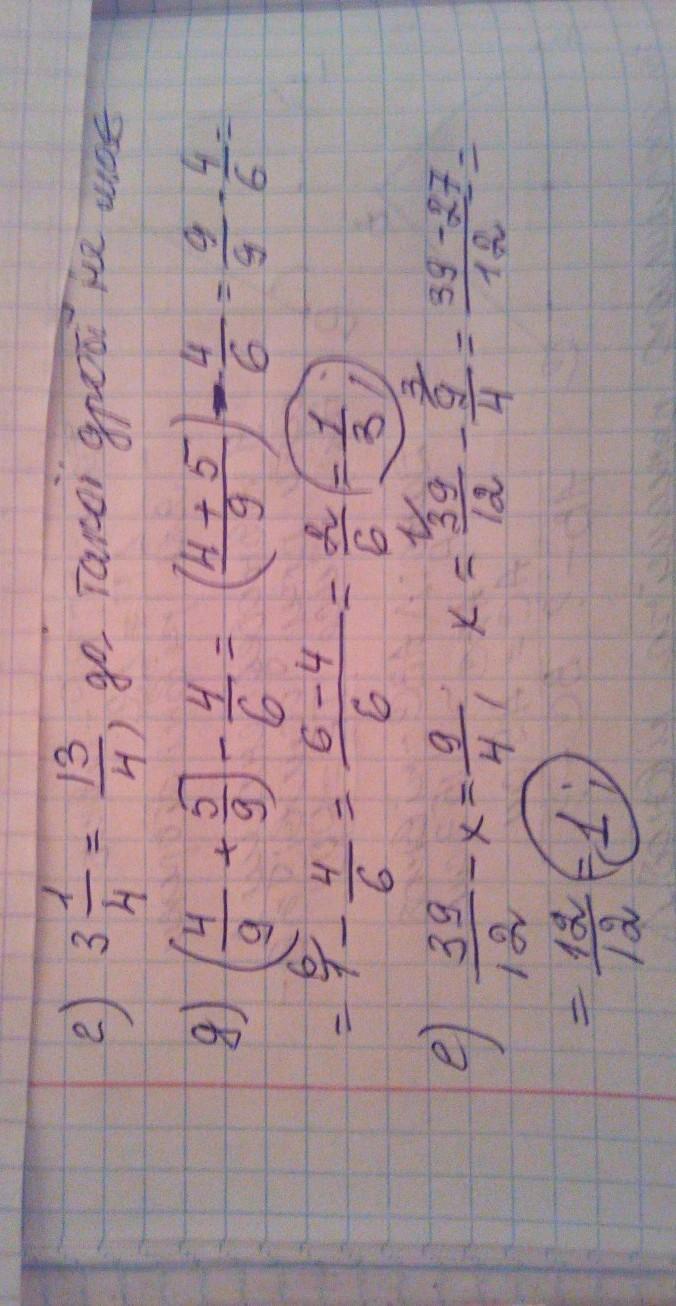 г) 3 1/4 = 13/4, да, такої дроті не має
д) (4/9 + 5/9) - 4/6 = ((4+5)/9) - 4/6 = 9/9 - 4/6 =
= 6/1 - 4/6 = (6-4)/6 = 2/6 = 1/3;
е) 39/12 - x = 9/4, x = 1/ 39/12 - 3/ 9/4 = (39-27)/12 =
= 12/12 = 1;